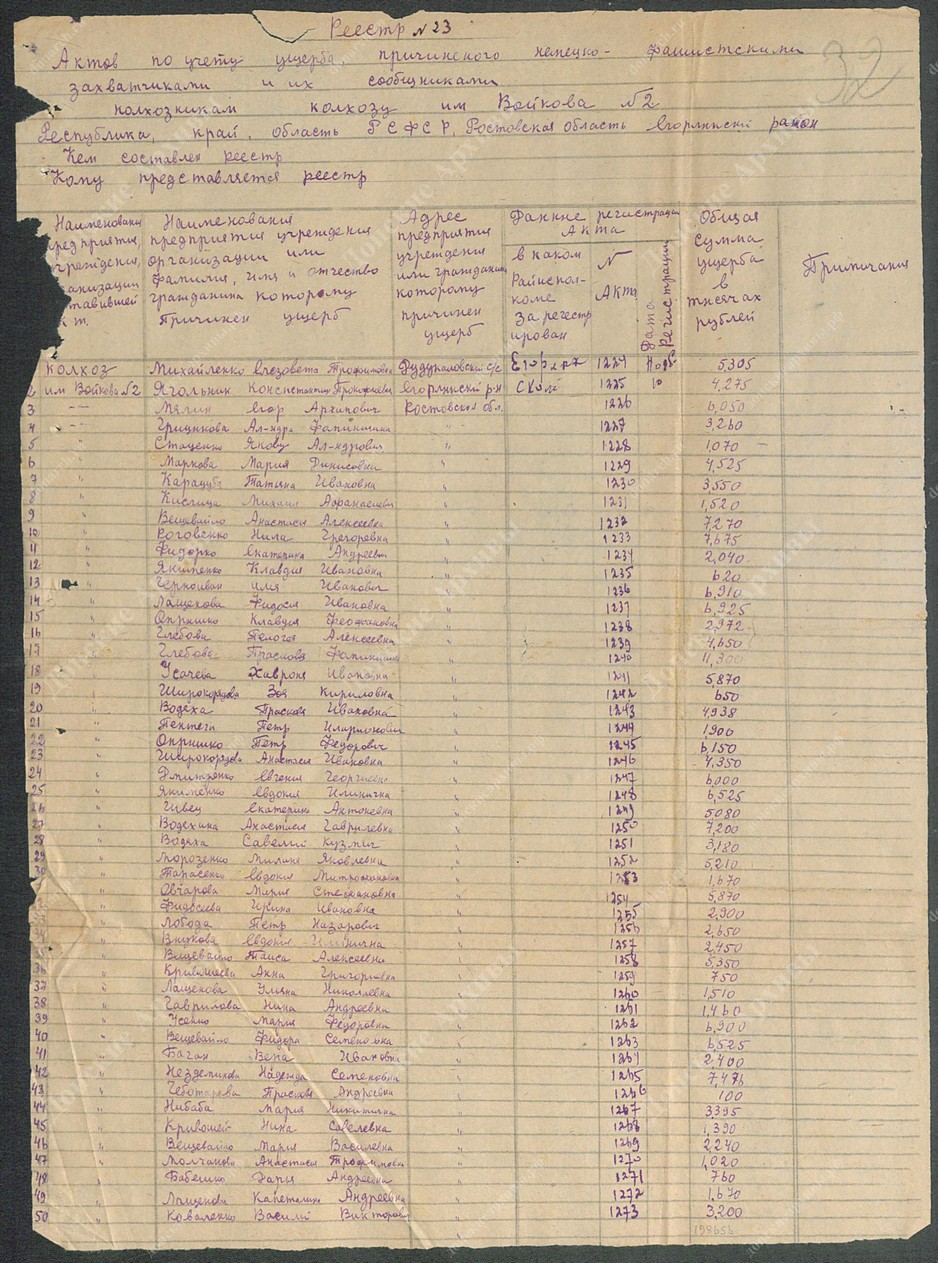 Реестр №23
32
Актов по учету ущерба, причиненого немецко-фашистскими
захватчиками и их сообщниками
колхозникам колхозу им Войкова №2
Республика, край, область РСФСР, Ростовская область Егорлыкский район
Кем составлен реестр
Кому представляется реестр
Наименования Наименования предприятия учреждения организации или фамилия, имя и отчество гражданина которому причинен ущерб
Адрес предприятия учреждения или гражданина которому причинен ущерб
Данные регистрации Акта
в каком Райиспол-коме зарегистрирован
N Акта
Дата Регистрации
Общая сумма ущерба в тысячах рублей
Примичания
колхоз Михайленко Елезовета Трофимовна 1224 5305
2 им Войкова №2 Ягольник Константин Прокофьевич Егорлыкский р-н 1225 4,275
3 -"- Мялин Егор Архипович Ростовская обл. 1226 6,050
4 " Грицыкова Ал-ндра " 1227 3,260
5 " Стаценко Яков Ал-ндрович " 1228 1,070
6 " Маркова Мария Динисовна " 1229 4,525
7 " Карацуба Татьяна Ивановна " 1230 3,550
8 " Кислица Михаил Афанасьевич " 1231 1,520
9 " Вещевайло Анастасия Алексеевна " 1232 7,270
10 " Роговенко Нила Григоревна " 1233 7,675
11 " Фидорко Екатерина Андреевна " 1234 2,040
12 " Якименко Клавдия Ивановна " 1235 620
13 " Черноиван Илья Иванович " 1236 6,910
14 " Лащенова Фидосия Ивановна " 1237 6,925
15 " Опришко Клавдия Феофановна " 1238 2,972
16 " Глебова Пелогея Алексеевна " 1239 4,650
17 " Глебова Прасковя " 1240 11,300
18 " Усачева Хавроня Ивановна " 1241 5,870
19 " Широкорядова Зоя Кириловна " 1242 650
20 " Водяха Прасковя Ивановна " 1243 4,938
21 " Пентега Петр Иларионович " 1244 1900
22 " Опришко Петр Федорович " 1245 6,150
23 " Широкорядова Анастасия Ивановна " 1246 4,350
24 " Дмитренко Евгения Георгиевна " 1247 6,000
25 " Якименко Евдокия Илинична " 1248 6,525
26 " Швец Екатерина Антоновна " 1249 5,080
27 " Водяхина Анастасия Гаврилевна " 1250 7,200
28 " Водяха Савелий Кузмич " 1251 3,180
29 " Морозенко Милиня Яковлевна " 1252 5,210
30 " Тарасенко Евдокия Митрофановна " 1253 1,670
" Овчарова Мария Стефановна " 1254 5,870
" Фидосеева Ирина Ивановна " 1255 2,900
" Лобода Петр Назарович " 1256 2,650
34 " Внукова Евдокия Илинична " 1257 2,450
35 " Вещевайло Таиса Алексеевна " 1258 5,350
36 " Кривошеева Анна Григорьевна " 1259 750
37 " Лащенова Ульяна Николаевна " 1260 1,510
38 " Гаврилова Нина Андреевна " 1261 1,460
39 " Усенко Мария Федоровна " 1262 6,900
40 " Вещевайло Фидора Семеновна " 1263 6,525
41 " Баган Вера Ивановна " 1264 2,400
42 " Нездемикова Надежда Семеновна " 1265 7,476
43 " Чеботарева Прасковя Андреевна " 1266 100
44 " Нибаба Мария Никитична " 1267 3,395
45 " Кривошей Нина Савелевна " 1268 1,390
46 " Вещевайло Мария Василевна " 1269 2,240
47 " Молчанова Анастасия Трофимовна " 1270 1,020
48 " Бабешко Дарья Андреевна " 1271 760
49 " Лащенова Капетолина Андреевна " 1272 1,670
50 " Коваленко Василий Викторович " 1273 3,200
198656